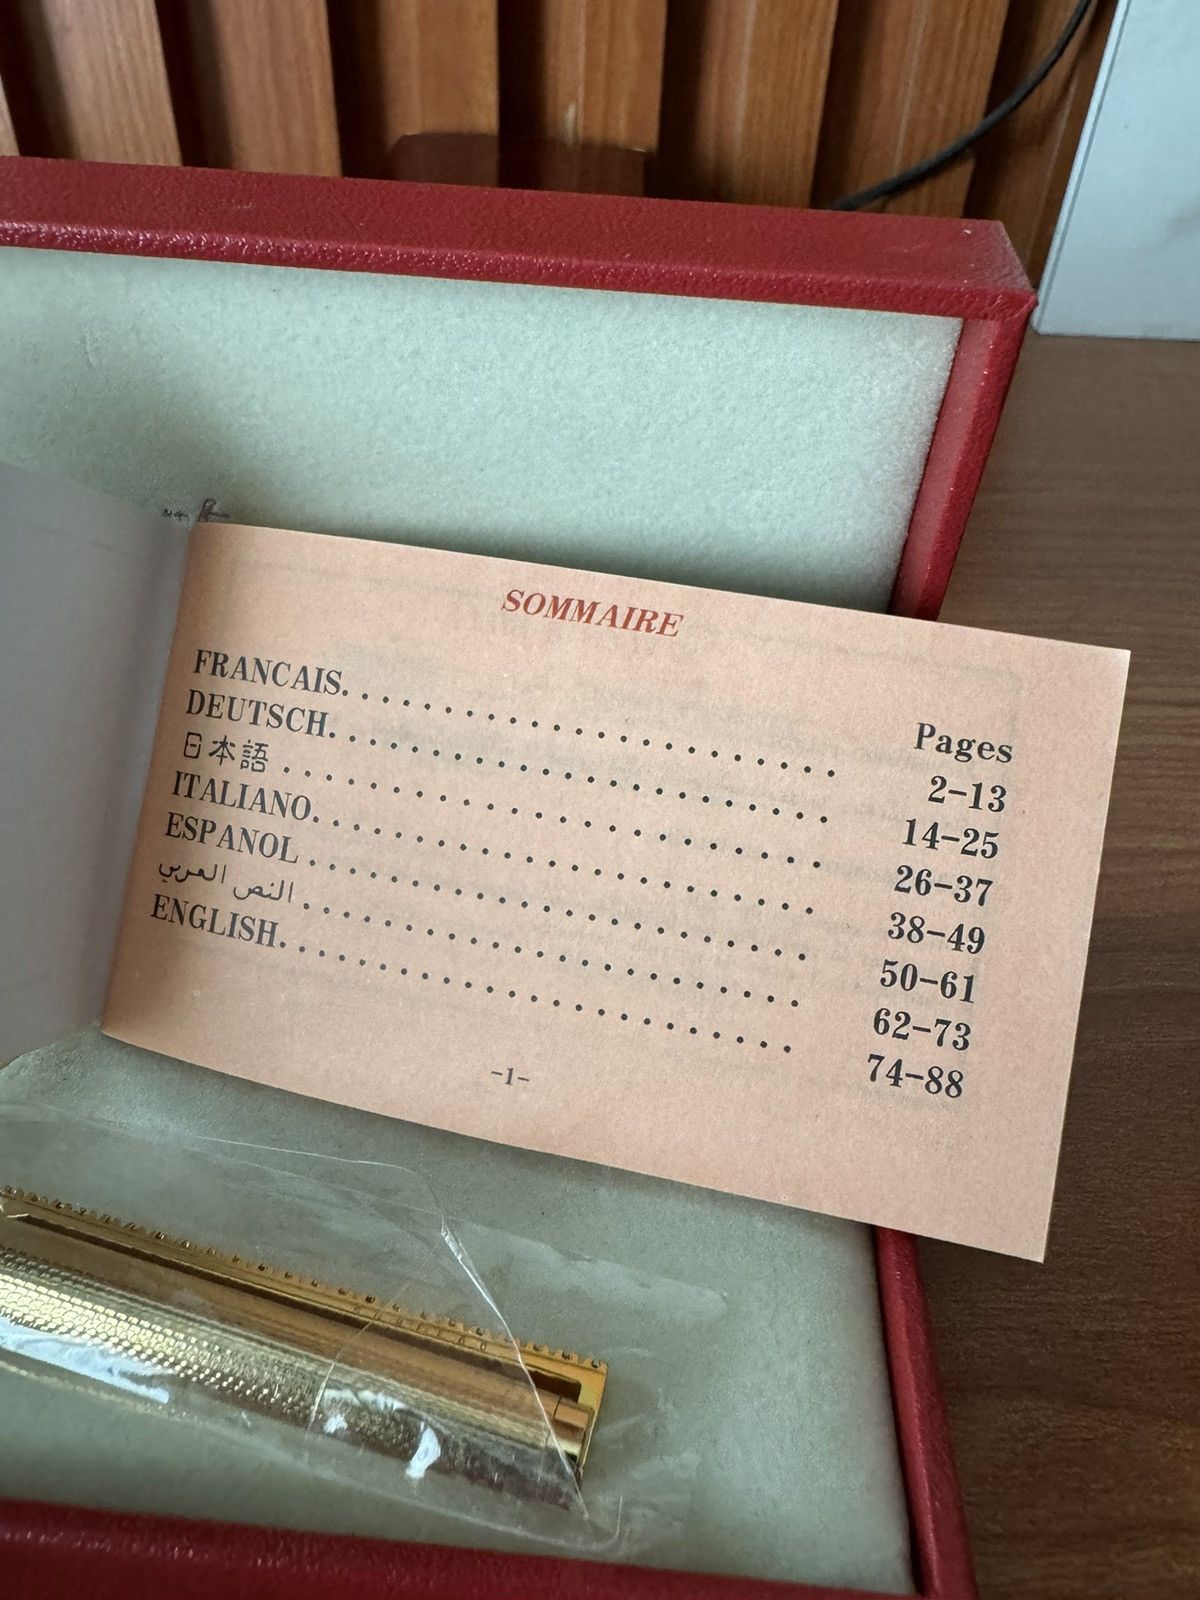 SOMMAIRE
Pages
FRANCAIS. . . . . . . . . . . . . . . . . . . . . . . . 2-13
DEUTSCH. . . . . . . . . . . . . . . . . . . . . . . . 14-25
日本語 . . . . . . . . . . . . . . . . . . . . . . . . . . 26-37
ITALIANO. . . . . . . . . . . . . . . . . . . . . . . . 38-49
ESPANOL . . . . . . . . . . . . . . . . . . . . . . . . 50-61
النص العربي . . . . . . . . . . . . . . . . . . . . . . . . 62-73
ENGLISH. . . . . . . . . . . . . . . . . . . . . . . . 74-88
-1-